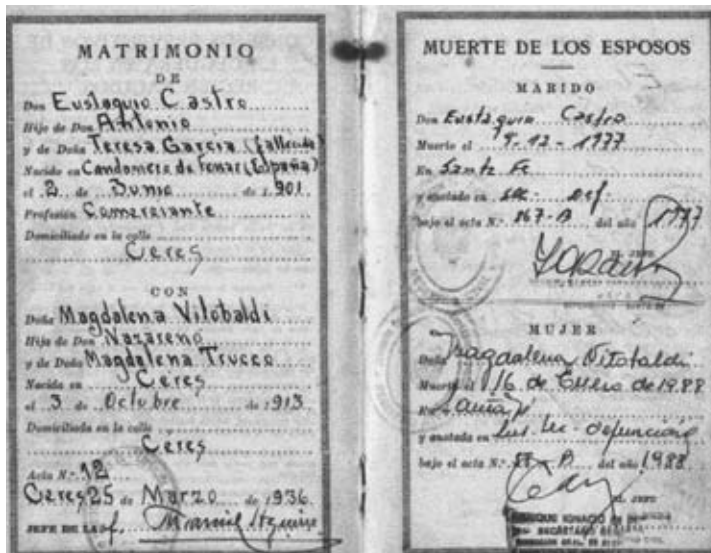 MATRIMONIO
DE
Don Eustaquio Castro
Hijo de Don Antonio
y de Doña Teresa García (fallecida)
Nacido en Candanedo de Fenar (España)
el 2 de Junio de 1.901
Profesión Comerciante
Domiciliado en la calle
Ceres
CON
Doña Magdalena Vitobaldi
Hija de Don Nazareno
y de Doña Magdalena Trucco
Nacida en Ceres
el 3 de Octubre de 1913
Domiciliada en la calle
Ceres
Acta N.º 12
Ceres 25 de Marzo de 1936.
JEFE DE LA
MUERTE DE LOS ESPOSOS
MARIDO
Don Eustaquio Castro
Muerto el 9-12-1977
En Santa Fe
y anotado en Sec. Def.
bajo el acta N.º 167-B del año 1977
EL JEFE
MUJER
Doña Magdalena Vitobaldi
Muerta el 16 de Enero de 1988
En
y anotada en defunción
bajo el acta N.º del año 1988
EL JEFE